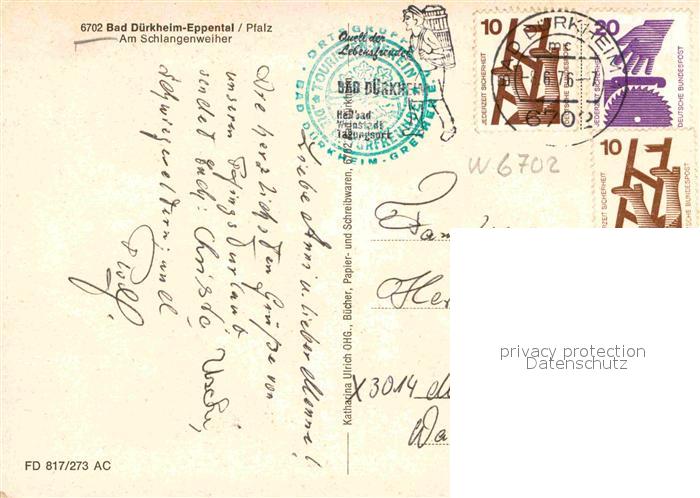 6702 Bad Dürkheim-Eppental / Pfalz
Am Schlangenweiher
Liebe Anni u. lieber Manne!
Die herzlichsten Grüße von
unserem
sendet Euch: Christl, Uschi,
Schwiegereltern und
Rolf
FD 817/273 AC
Katharina Ulrich OHG., Bücher, Papier- und Schreibwaren, 6702 Bad Dürkheim
ORTSGRUPPE
TOURISTENVEREIN
BAD DÜRKHEIM-GRETHEN
Quell der
Lebensfreude
BAD DÜRKHEIM
Heilbad
Weinstadt
Tagungsort
10
JEDERZEIT SICHERHEIT
DEUTSCHE BUNDESPOST
20
JEDERZEIT SICHERHEIT
DEUTSCHE BUNDESPOST
10
JEDERZEIT SICHERHEIT
DEUTSCHE BUNDESPOST
BAD DÜRKHEIM
6702
W 6702
Fam
Her
X3014
privacy protection
Datenschutz